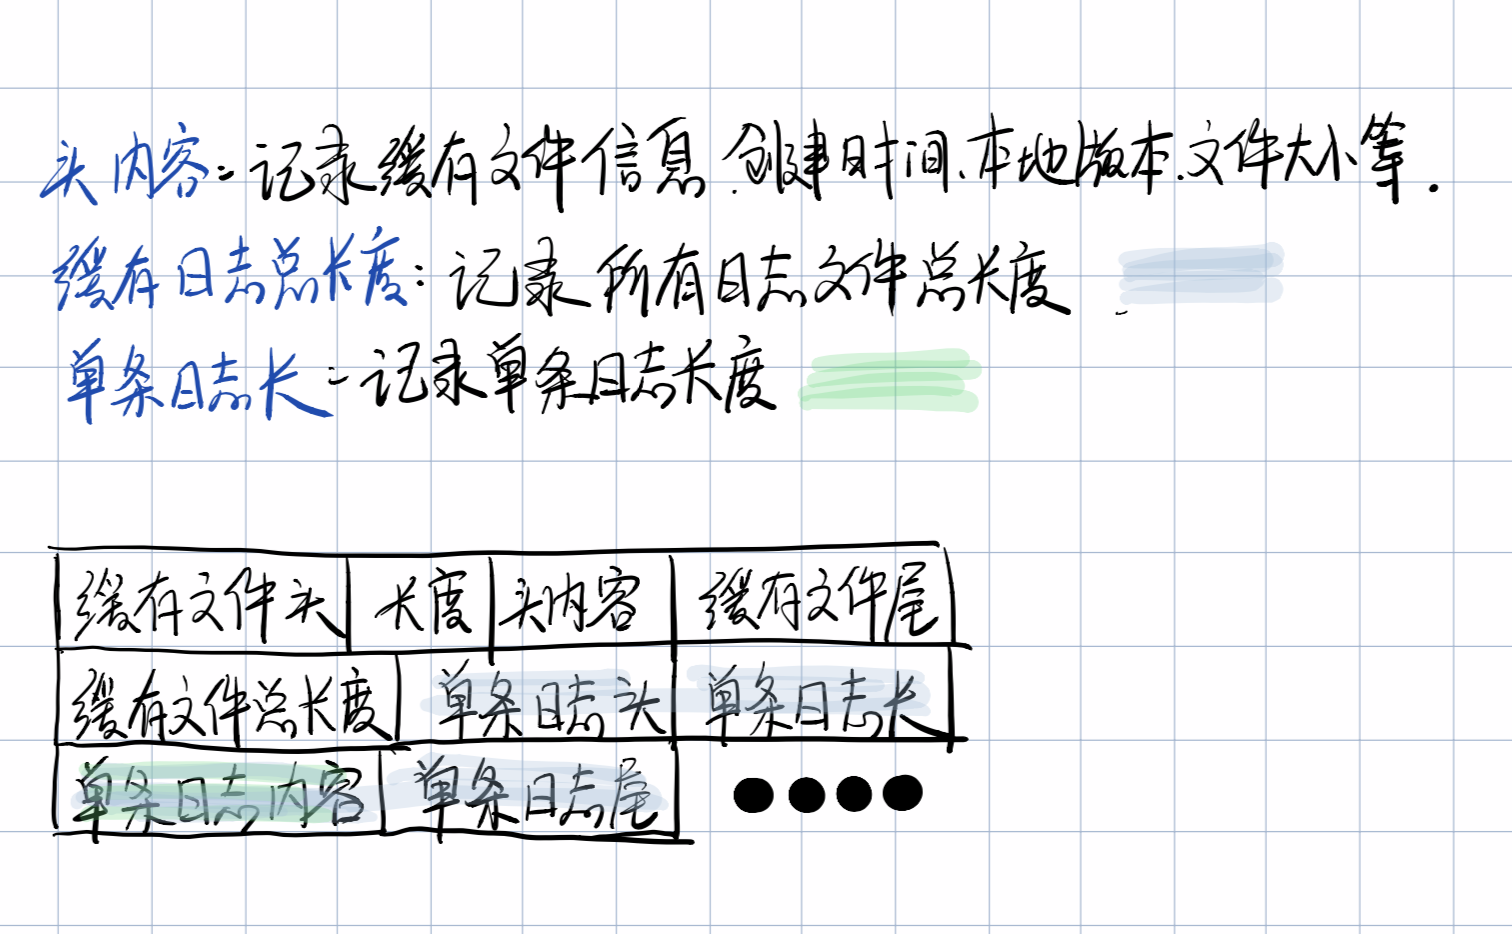 头内容：记录缓存文件信息.创建时间、本地版本.文件大小等.
缓存日志总长度：记录所有日志文件总长度
单条日志长：记录单条日志长度
缓存文件头 长度 头内容 缓存文件尾
缓存文件总长度 单条日志头 单条日志长
单条日志内容 单条日志尾